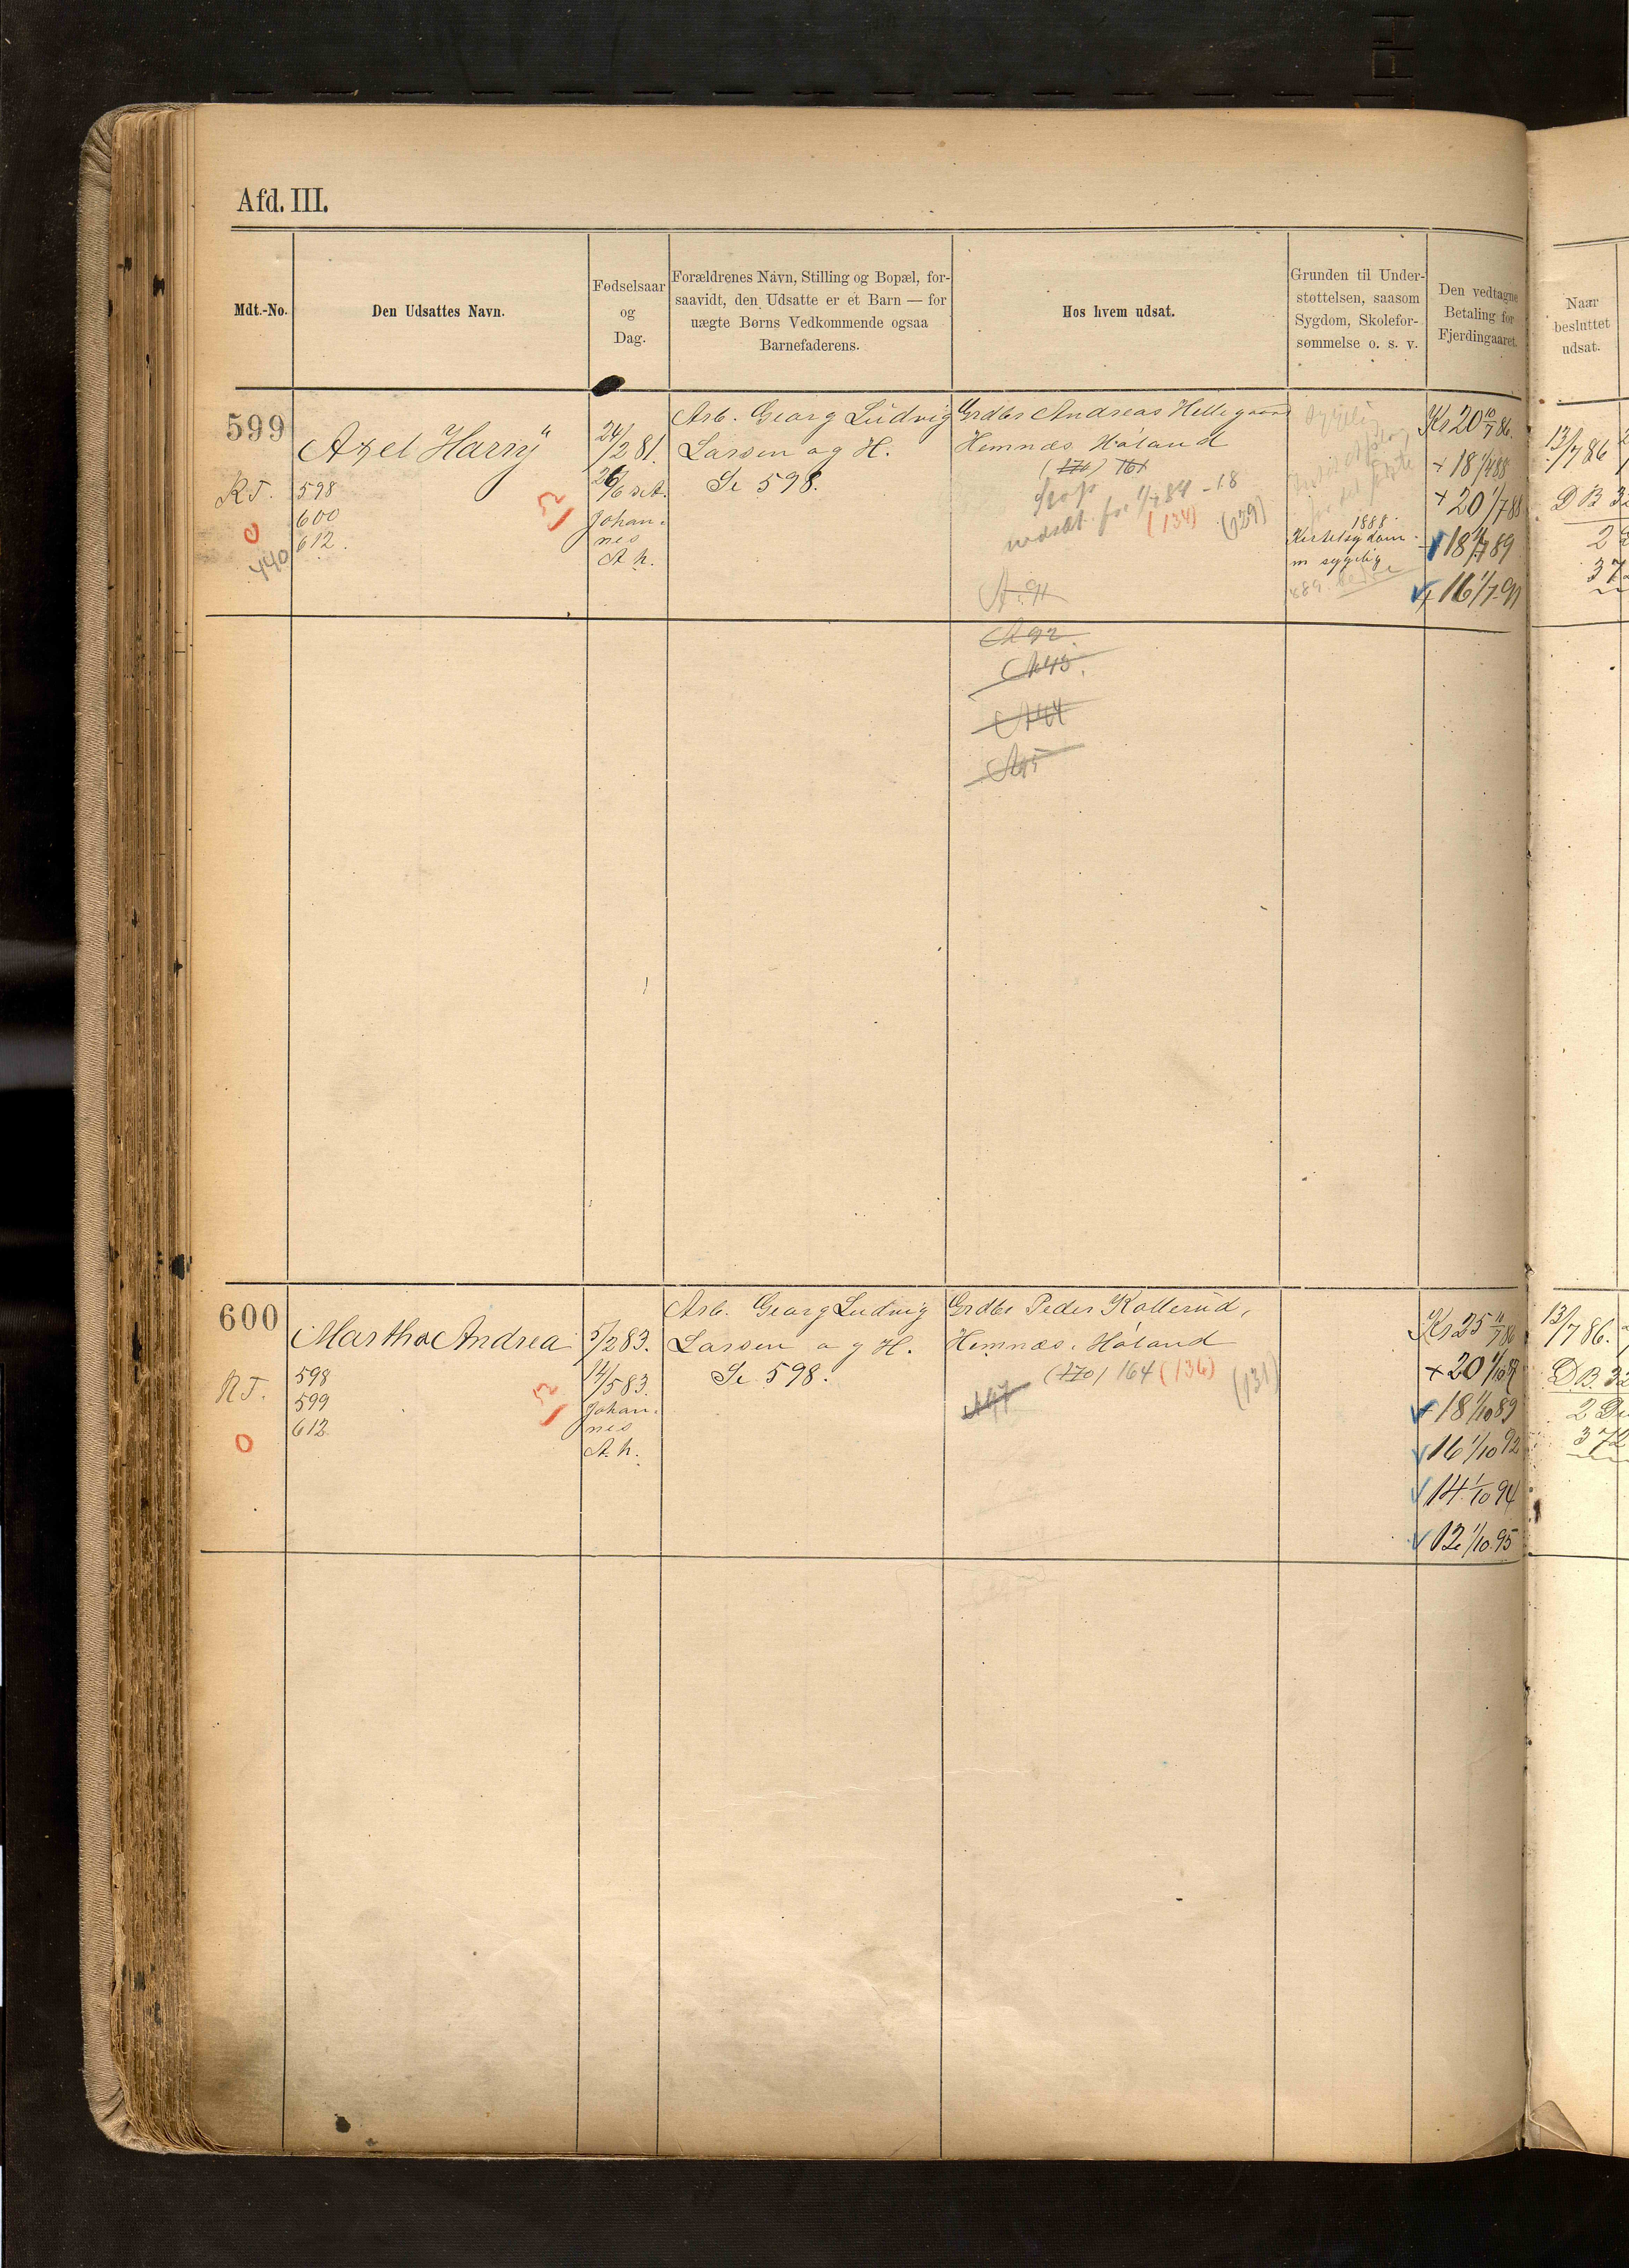 Afd. III.
Mdt.-No.
Den Udsattes Navn.
Fødselsaar
og
Dag.
Forældrenes Navn, Stilling og Bopæl, for-
saavidt, den Udsatte er et Barn — for
uægte Børns Vedkommende ogsaa
Barnefaderens.
Hos hvem udsat.
Grunden til Under-
støttelsen, saasom
Sygdom, Skolefor-
sømmelse o. s. v.
Den vedtagne
Betaling for
Fjerdingaaret.
Naar
besluttet
udsat.
599
R T.
0
440
Axel Harry
598
600
612.
24/2 81.
26/6
Johan-
nes
A. h.
Arb. Georg Ludvig
Larsen og H.
Se 598.
Grdbr Andreas Hellegaard
Hemnæs, Høland
(170) 161
nedsat for 1/7 84 - 18
(134) (129)
A. 91
A 92
A 93.
A 94
A 95
sygelig
1888
Kirtelsygdom
m sygelig
889.
Kr 20 10/7 86.
+ 18 1/4 88
+ 20 1/7 88
+ 18 1/7 89
+ 16 1/7 91
13/7 86
D B 3
2
37
600
R T.
0
Martha Andrea
598
599
612
5/2 83.
14/5 83.
Johan-
nes
A. h.
Arb. Georg Ludvig
Larsen og H.
Se 598.
Grdbr Peder Kollerud,
Hemnæs, Høland
(170) 164 (136) (131)
A 97
Kr 25 10/7 86
+ 20 1/10 87
+ 18 1/10 89
16 1/10 92
14 1/10 94
12 1/10 95
13/7 86.
D B. 32
2
372